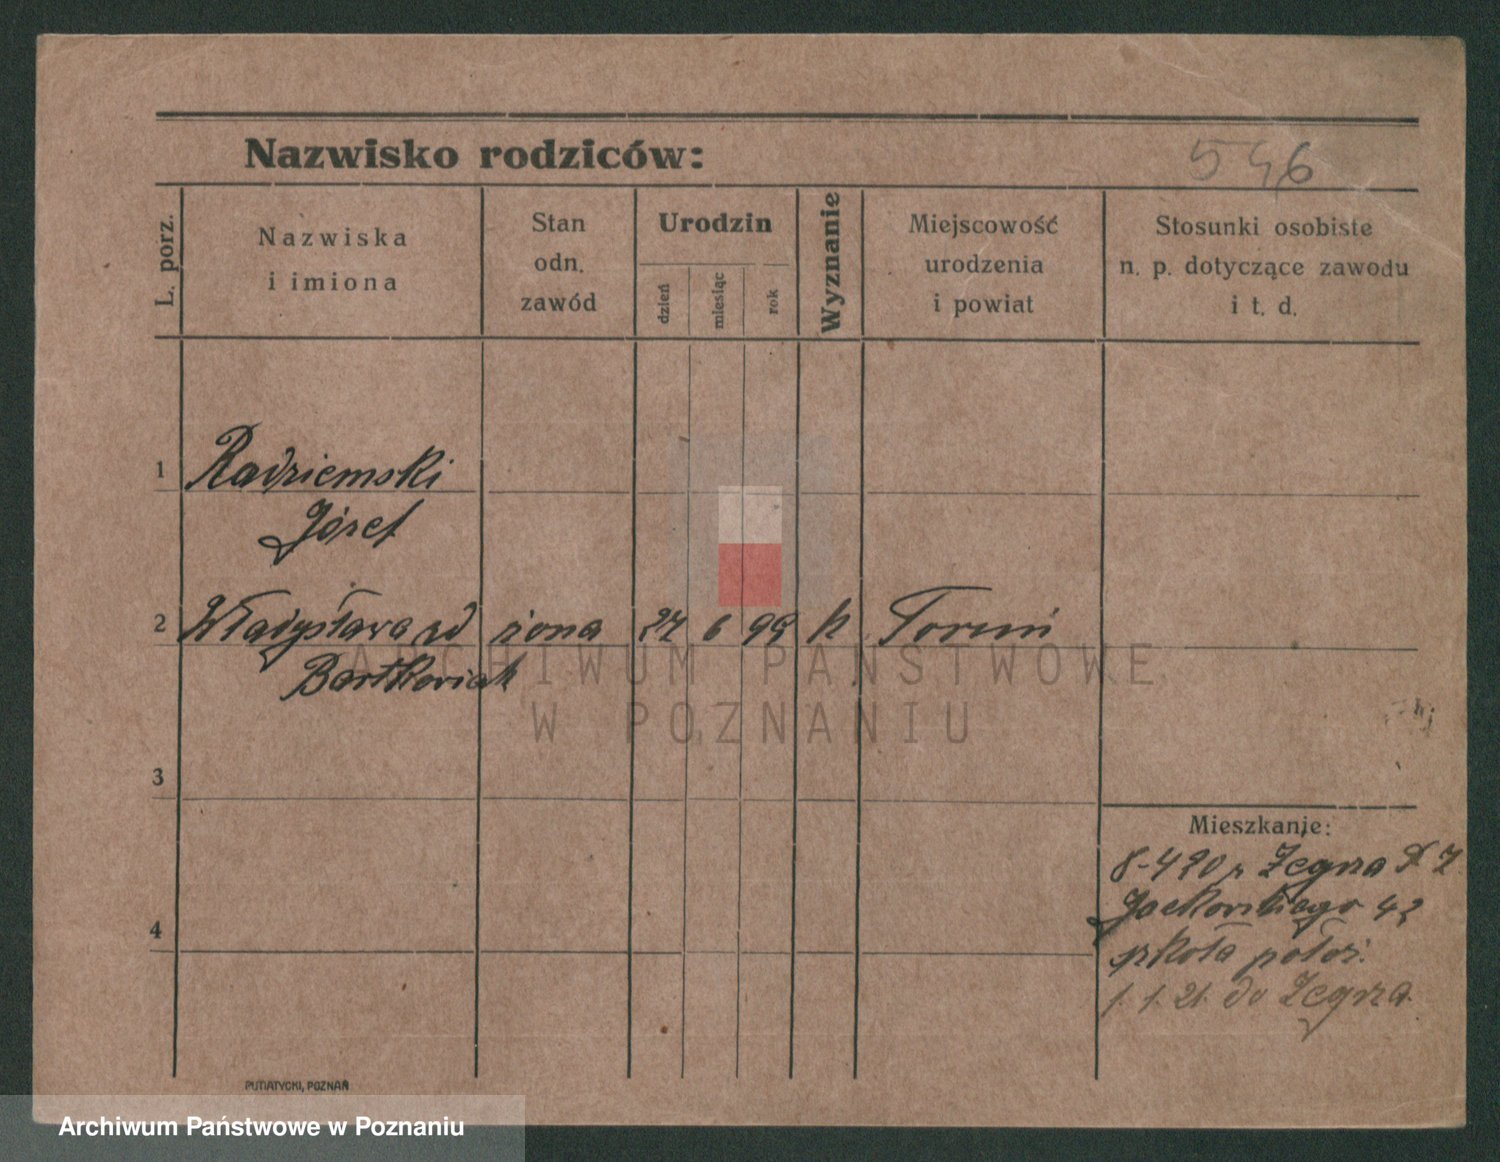 Nazwisko rodziców:
546
L. porz.
Nazwiska
i imiona
Stan
odn.
zawód
Urodzin
dzień
miesiąc
rok
Wyznanie
Miejscowość
urodzenia
i powiat
Stosunki osobiste
n. p. dotyczące zawodu
i t. d.
1 Radziemski
Józef
2 Władysława żona 27 6 99 k Toruń
Bartkowiak
3
4
Mieszkanie:
8-420 Zegrza
Jackowskiego 42
szkoła położ.
1. 1. 21. do Zegrza
PUTIATYCKI, POZNAŃ
ARCHIWUM PAŃSTWOWE
W POZNANIU
Archiwum Państwowe w Poznaniu